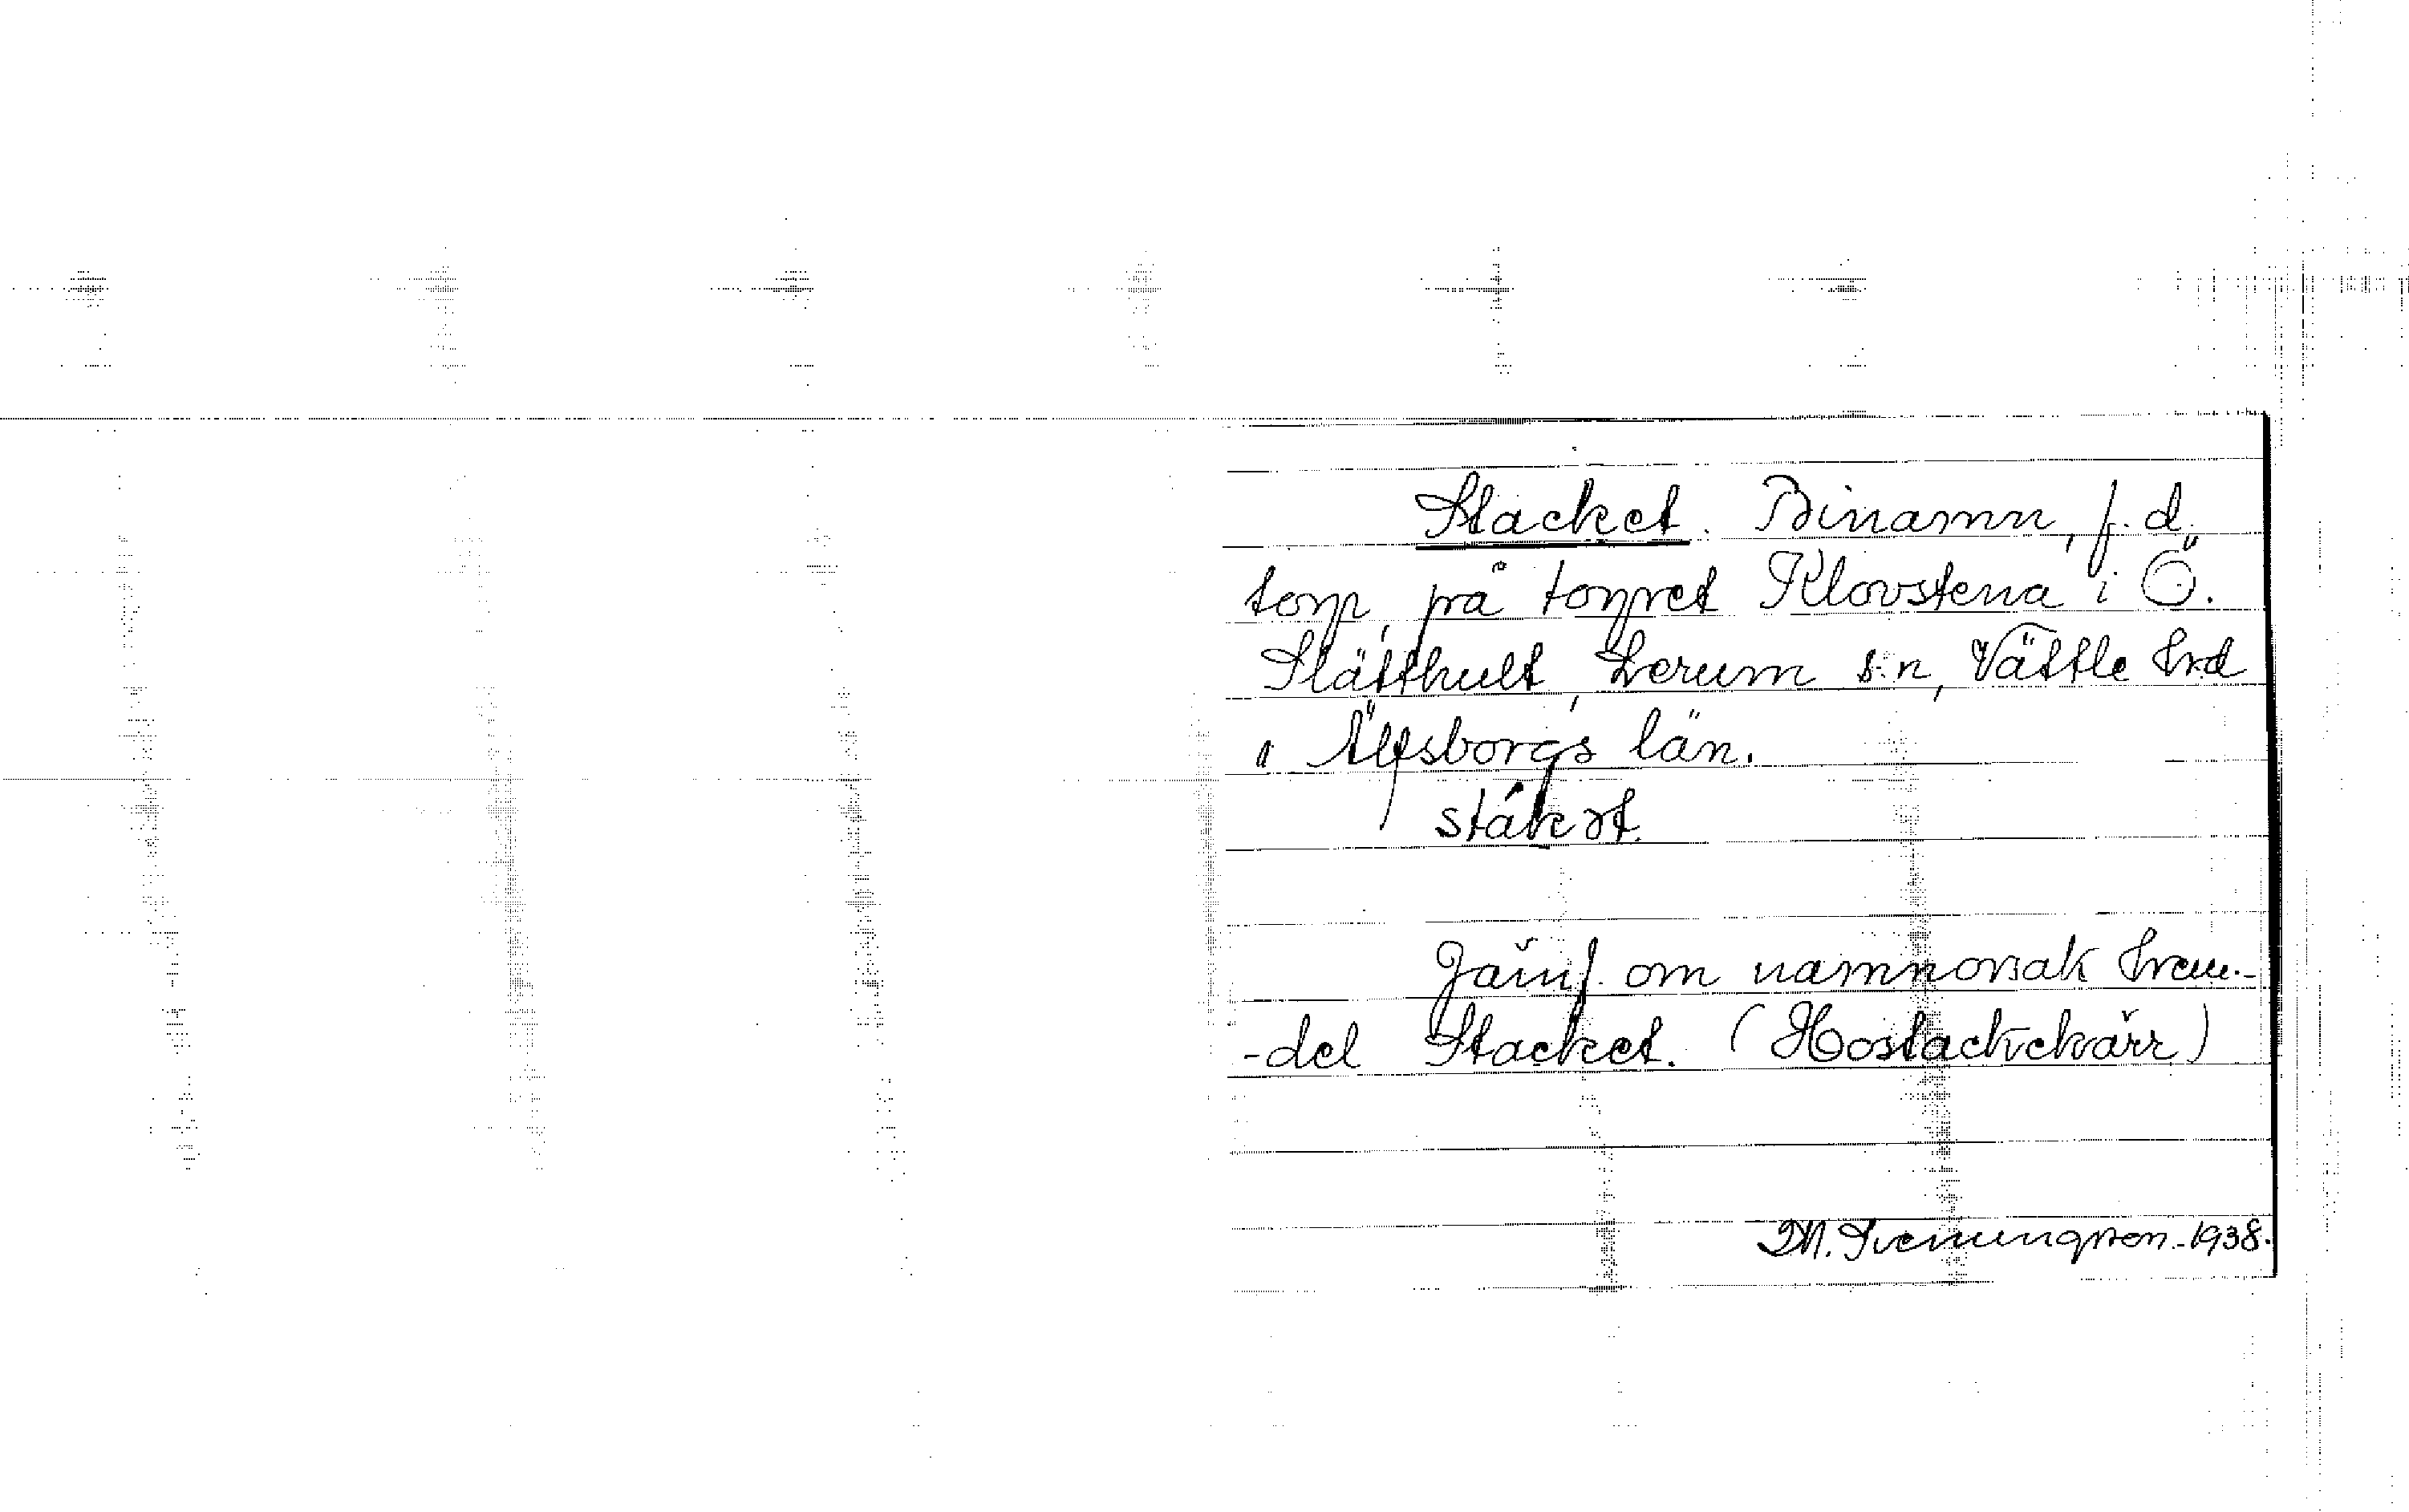 Stacket. Binamn, f. d.
torp, på torpret Klovstena i Ö.
Slätthult, Lerum s:n, Vättle hrd
" Älfsborgs län.
Jämf. om namnorsak
-del Stacket. (Hostackekärr)
M. Svenungson. 1938.